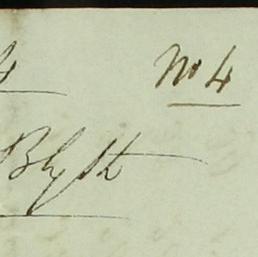 4 No 4
Blyth